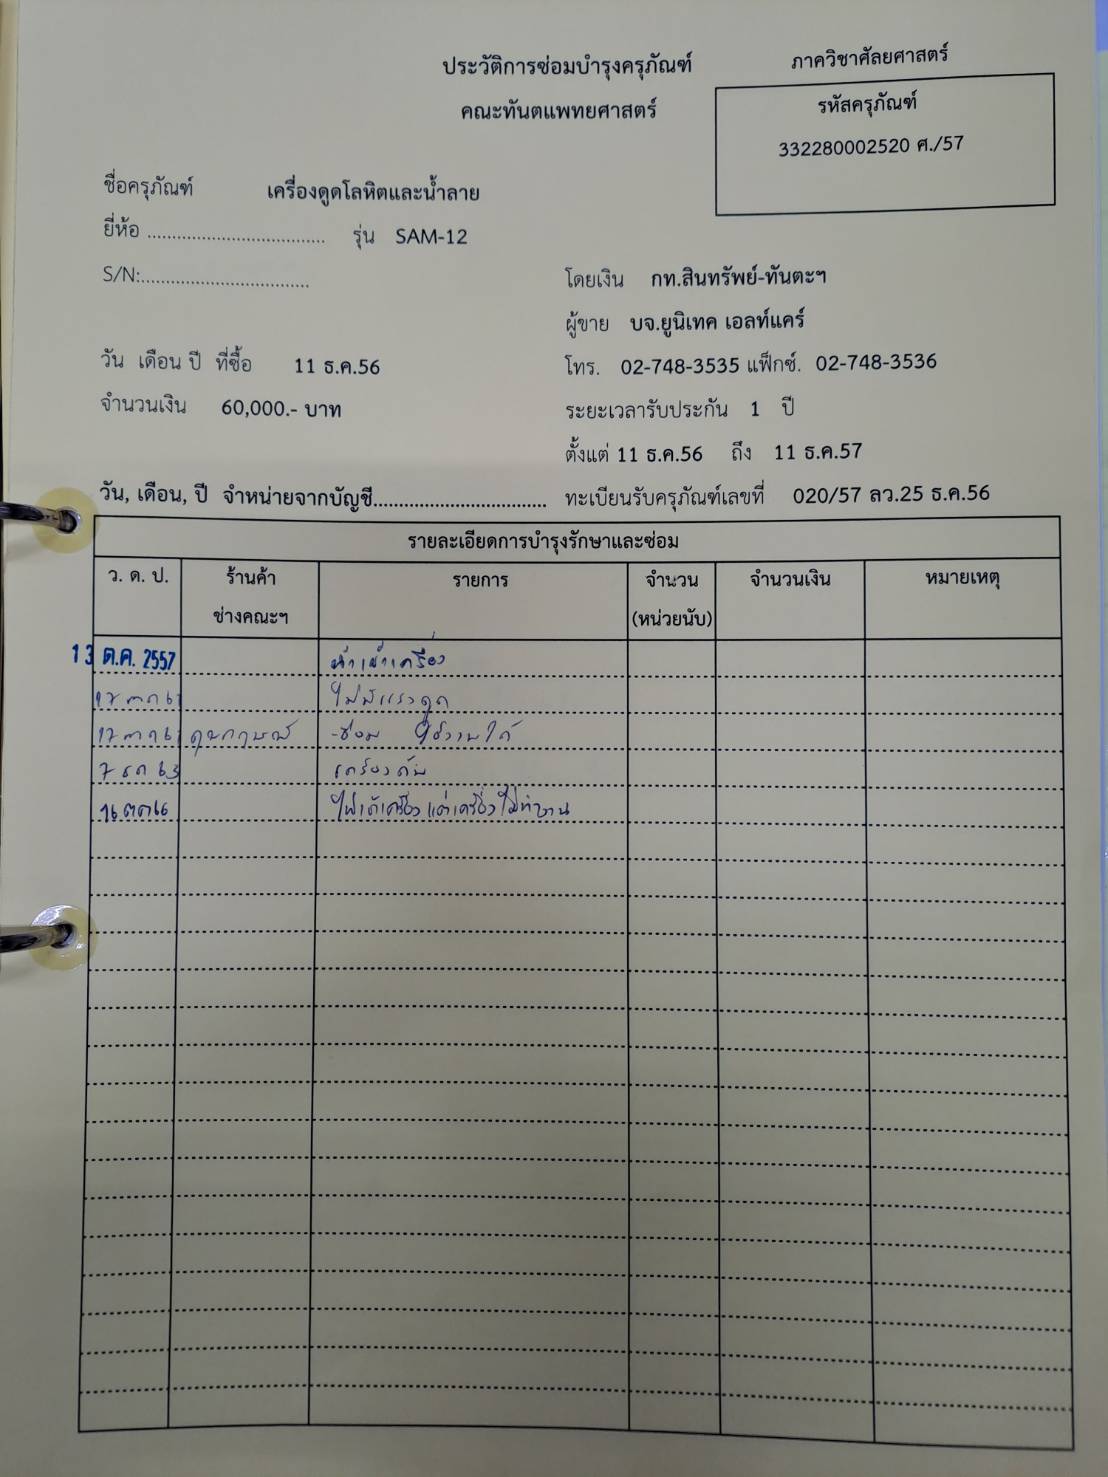 ประวัติการซ่อมบำรุงครุภัณฑ์
ภาควิชาศัลยศาสตร์
คณะทันตแพทยศาสตร์
รหัสครุภัณฑ์
332280002520 ศ./57
ชื่อครุภัณฑ์ เครื่องดูดโลหิตและน้ำลาย
ยี่ห้อ .................................. รุ่น SAM-12
S/N:................................
โดยเงิน กท.สินทรัพย์-ทันตะฯ
ผู้ขาย บจ.ยูนิเทค เอลท์แคร์
วัน เดือน ปี ที่ซื้อ 11 ธ.ค.56
โทร. 02-748-3535 แฟ็กซ์. 02-748-3536
จำนวนเงิน 60,000.- บาท
ระยะเวลารับประกัน 1 ปี
ตั้งแต่ 11 ธ.ค.56 ถึง 11 ธ.ค.57
วัน, เดือน, ปี จำหน่ายจากบัญชี.................................
ทะเบียนรับครุภัณฑ์เลขที่ 020/57 ลว.25 ธ.ค.56
รายละเอียดการบำรุงรักษาและซ่อม
ว. ด. ป. ร้านค้า รายการ จำนวน จำนวนเงิน หมายเหตุ
ช่างคณะฯ (หน่วยนับ)
13 ต.ค. 2557 เครื่อง
ไม่มีแรงดูด
-ซ่อม ใช้งานได้
เครื่องดับ
ไฟเข้าเครื่อง แต่เครื่องไม่ทำงาน